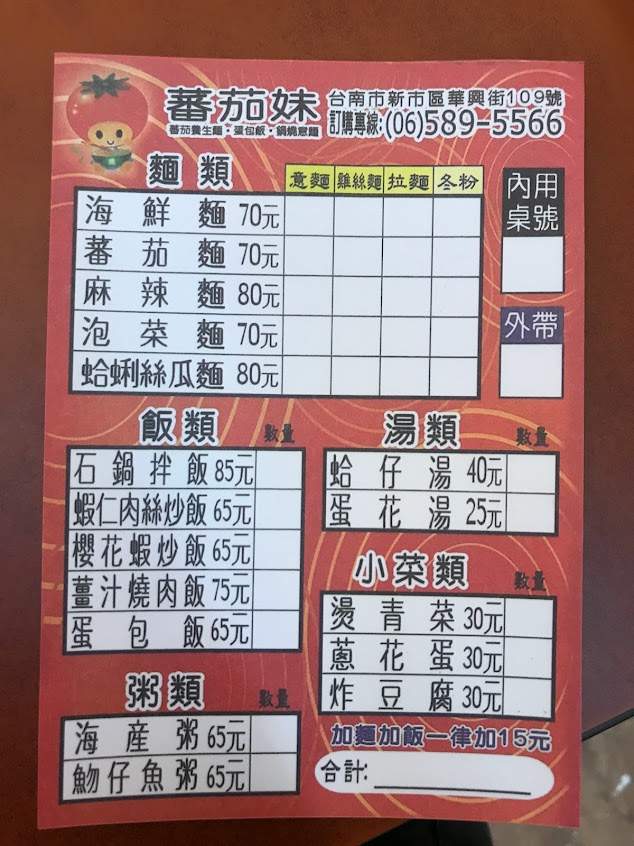 蕃茄妹
蕃茄養生麵・蛋包飯・鍋燒意麵
台南市新市區華興街109號
訂購專線:(06)589-5566
麵類
意麵 雞絲麵 拉麵 冬粉
海鮮麵 70元
蕃茄麵 70元
麻辣麵 80元
泡菜麵 70元
蛤蜊絲瓜麵 80元
內用
桌號
外帶
飯類 數量
石鍋拌飯 85元
蝦仁肉絲炒飯 65元
櫻花蝦炒飯 65元
薑汁燒肉飯 75元
蛋包飯 65元
粥類 數量
海產粥 65元
魩仔魚粥 65元
湯類 數量
蛤仔湯 40元
蛋花湯 25元
小菜類 數量
燙青菜 30元
蔥花蛋 30元
炸豆腐 30元
加麵加飯一律加15元
合計: